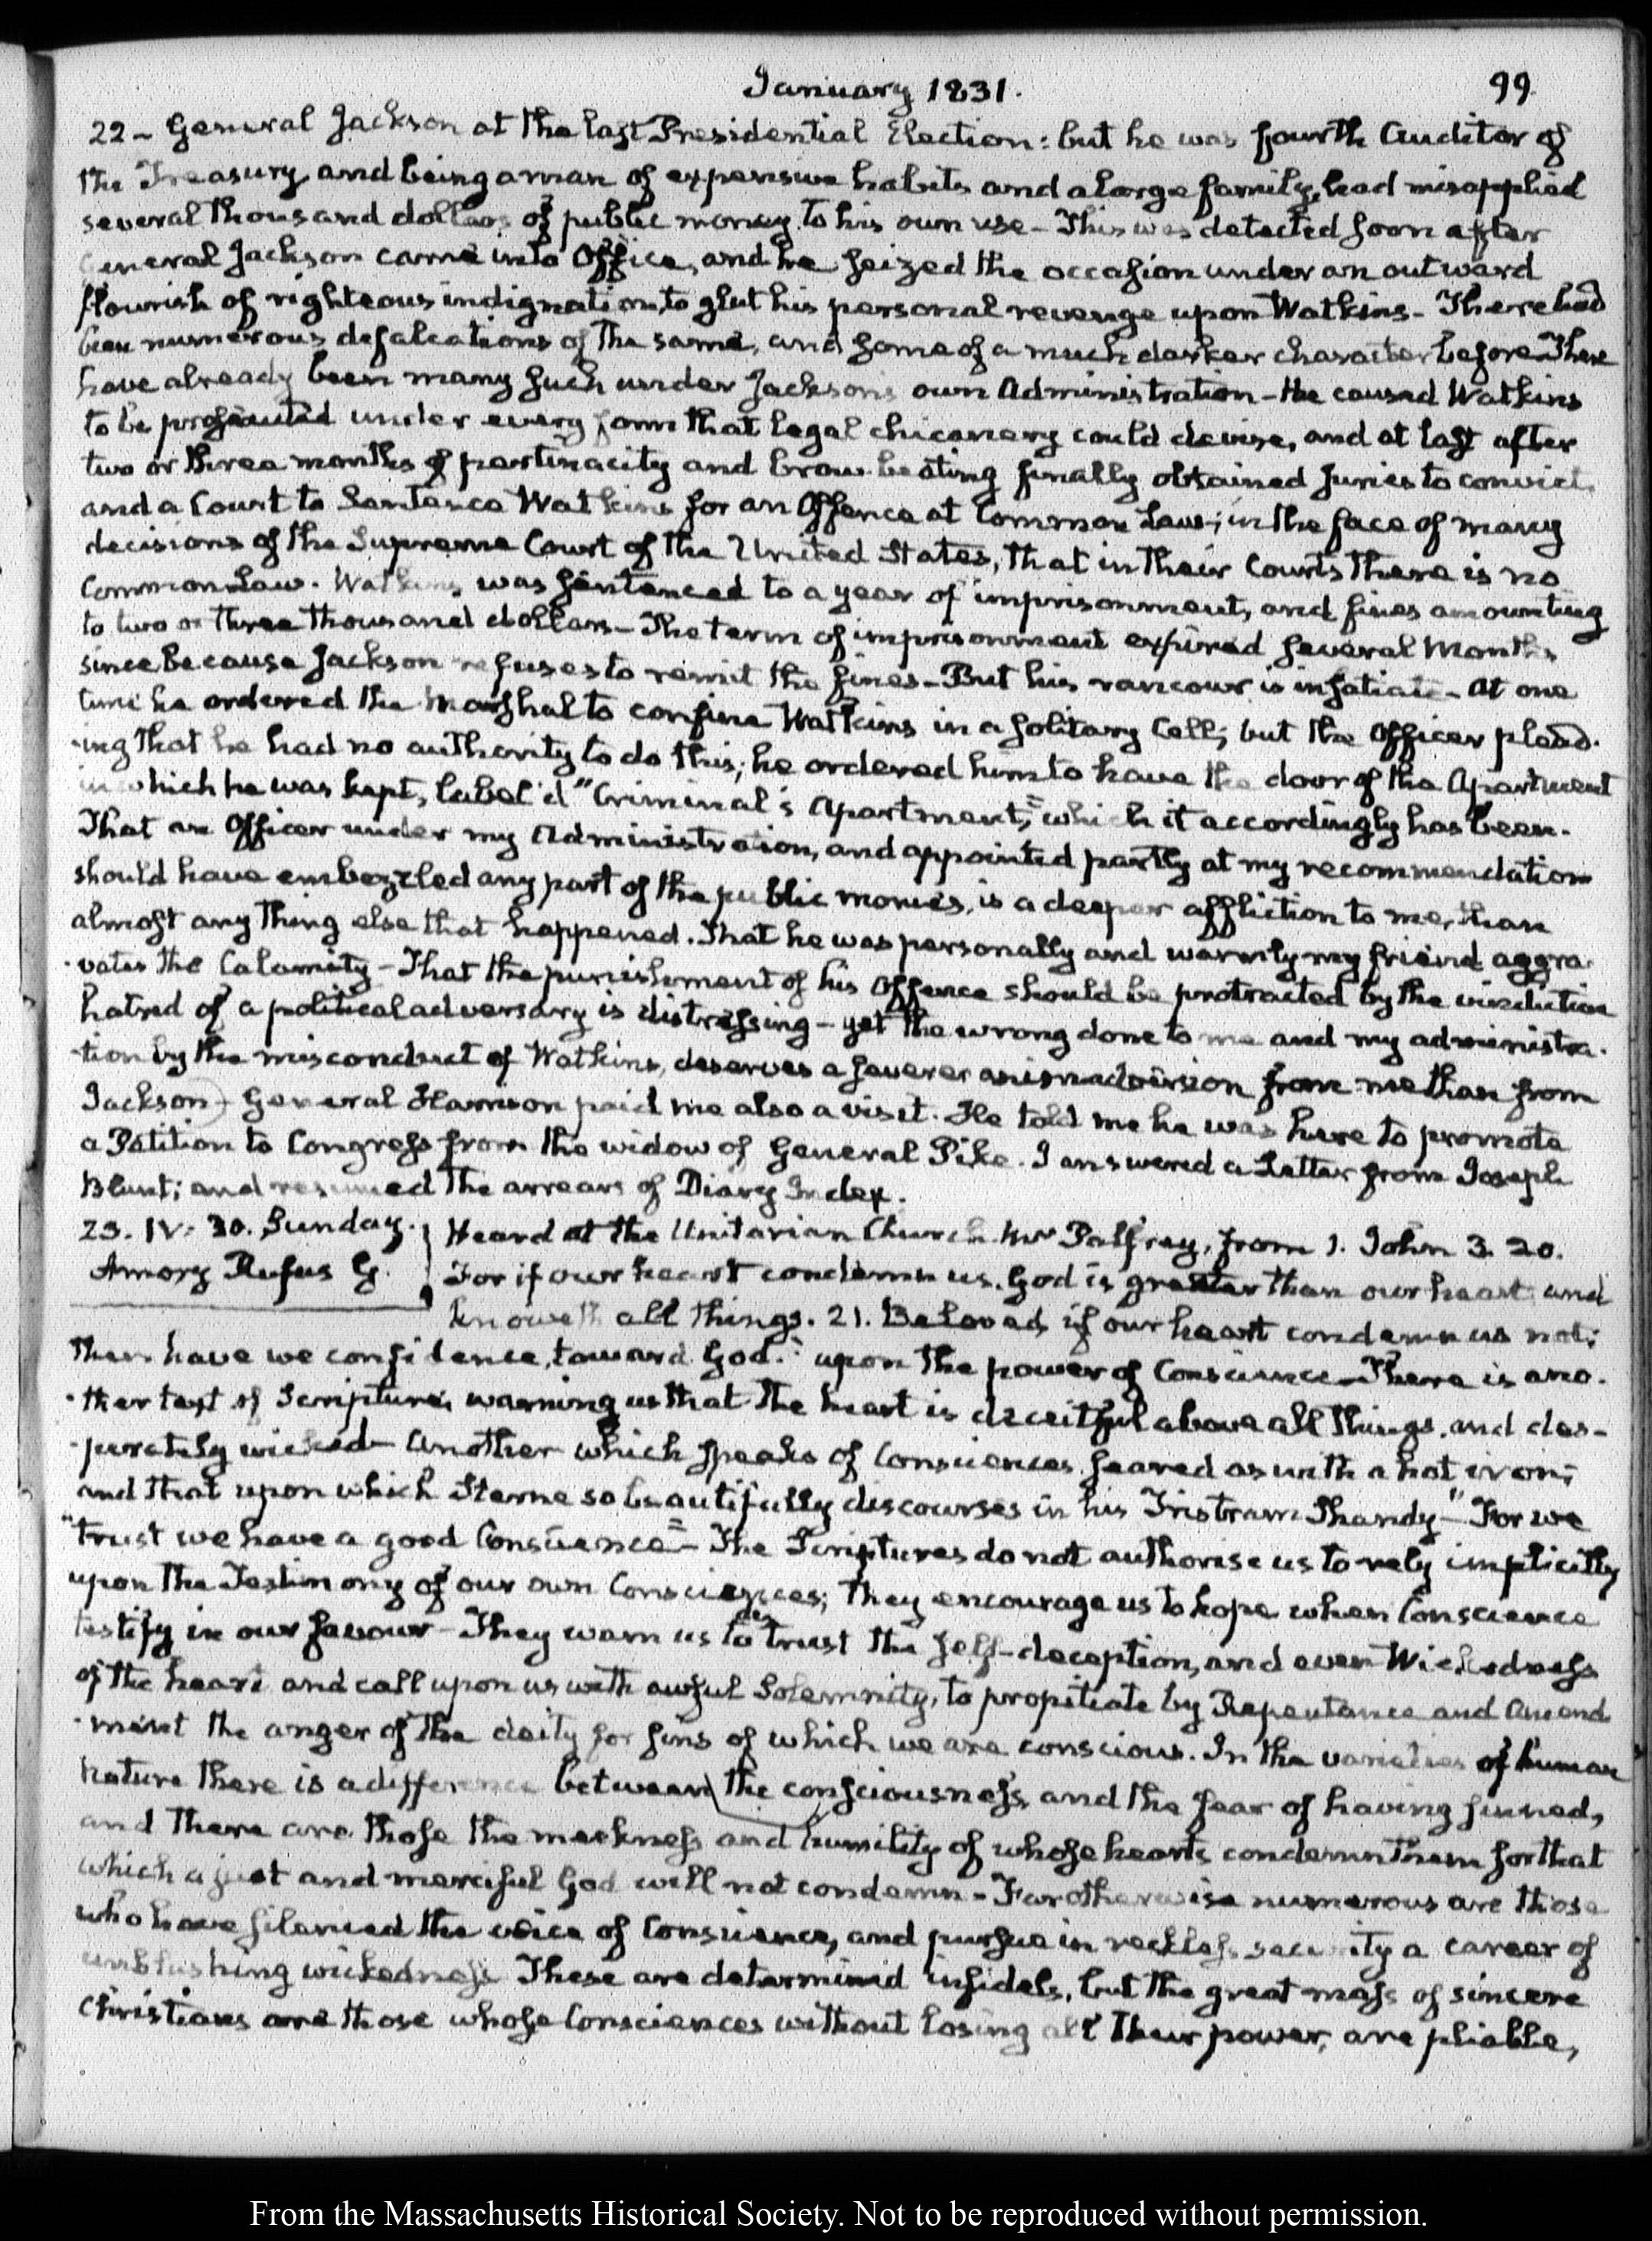 January 1831.
99
22 - General Jackson at the last Presidential Election: but he was fourth Auditor of
the Treasury, and being a man of expensive habits and a large family, had misapplied
several thousand dollars of public money to his own use - This was detected soon after
General Jackson came into Office, and he seized the occasion under an outward
flourish of righteous indignation, to glut his personal revenge upon Watkins - There had
been numerous defalcations of the same, and some of a much darker character before. There
have already been many such under Jackson's own Administration - He caused Watkins
to be prosecuted under every form that legal chicanery could devise, and at last after
two or three months of pertinacity and brow-beating finally obtained juries to convict,
and a Court to Sentence Watkins for an Offence at Common Law; in the face of many
decisions of the Supreme Court of the United States, that in their Courts there is no
Common Law. Watkins, was sentenced to a year of imprisonment, and fines amounting
to two or three thousand dollars - The term of imprisonment expired several Months
since because Jackson refuses to remit the fines - But his rancour is insatiate - At one
time he ordered the Marshal to confine Watkins in a solitary Cell; but the Officer plead-
-ing that he had no authority to do this; he ordered him to have the door of the Apartment
in which he was kept, label'd "Criminal's Apartment," which it accordingly has been.
That an Officer under my Administration, and appointed partly at my recommendation
should have embezzled any part of the public monies, is a deeper affliction to me, than
almost any thing else that happened. That he was personally and warmly my friend aggra-
-vates the Calamity - That the punishment of his Offence should be protracted by the vindictive
hatred of a political adversary is distressing - yet the wrong done to me and my administra-
-tion by the misconduct of Watkins, deserves a severer animadversion from me than from
Jackson) - General Harrison paid me also a visit. He told me he was here to promote
a Petition to Congress from the widow of General Pike. I answered a Letter from Joseph
Blunt; and resumed the arrears of Diary Index.
23. IV: 30. Sunday. Heard at the Unitarian Church Mr Palfrey, from 1. John 3. 20.
Amory Rufus G. For if our heart condemn us, God is greater than our heart, and
knoweth all things. 21. Beloved, if our heart condemn us not;
then have we confidence, toward God." upon the power of Conscience - There is ano-
-ther text of Scripture, warning us that the heart is deceitful above all things, and des-
-perately wicked - Another which speaks of Consciences seared as with a hot iron;
and that upon which Sterne so beautifully discourses in his Tristram Shandy - "For we
"trust we have a good Conscience" - The Scriptures do not authorise us to rely implicitly
upon the Testimony of our own Consciences; they encourage us to hope when Conscience
testify in our favour - They warn us to distrust the self-deception, and even Wickedness
of the heart and call upon us with awful Solemnity, to propitiate by Repentance and Amend
-ment the anger of the deity for sins of which we are conscious. In the varieties of human
nature there is a difference between the consciousness, and the fear of having sinned,
and there are those the meekness and humility of whose hearts condemn them for that
which a just and merciful God will not condemn - Far otherwise numerous are those
who have silenced the voice of Conscience, and pursue in reckless security a career of
unblushing wickedness. These are determined infidels, but the great mass of sincere
Christians are those whose Consciences without losing all their power, are pliable,
From the Massachusetts Historical Society. Not to be reproduced without permission.